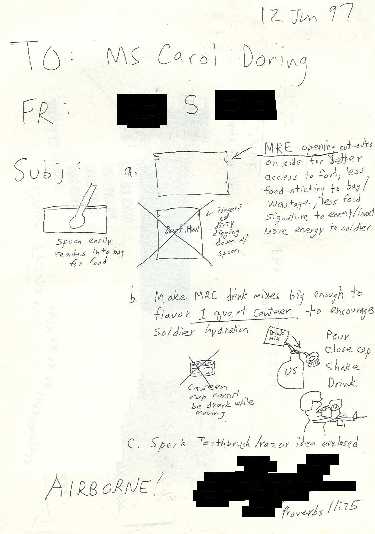 12 Jun 97
TO: Ms Carol Doring
FR: S
Subj:
a. MRE opening cut-outs
on side for better
access to food, less
food sticking to bag/
Wastage, less food
signature to enemy/
more energy to soldier
Spoon easily
reaches into bag
for food
Don't Have
fingers
get
dirty
digging
down w/
spoon
b. Make MRE drink mixes big enough to
flavor 1 quart canteen to encourage
Soldier hydration
Canteen
cup cannot
be drank while
moving
Drink
Mix
US
Pour
Close cap
Shake
Drink
c. Spork Toothbrush/razor idea enclosed
AIRBORNE!
Proverbs 11:25